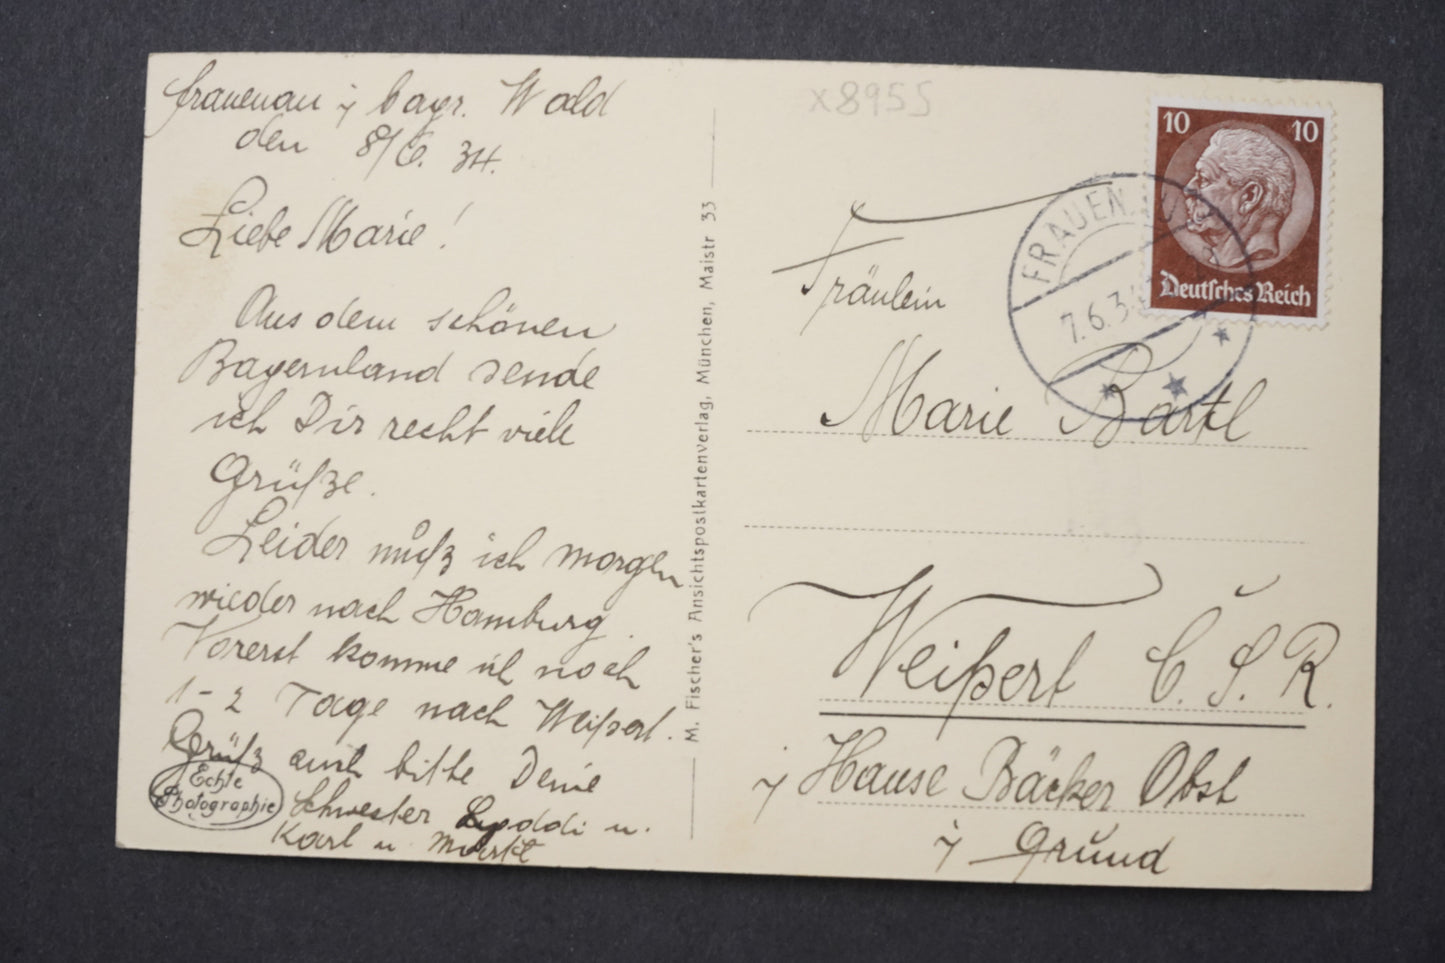 Frauenau i/ bayr. Wald
den 8/6. 34.
Liebe Marie!
Aus dem schönen
Bayernland sende
ich Dir recht viele
Grüße.
Leider muß ich morgen
wieder nach Hamburg.
Vorerst komme ich noch
1-2 Tage nach Weipert.
Grüß auch bitte Deine
Schwester Poldi u.
Karl u.
Echte
Photographie
M. Fischer's Ansichtspostkartenverlag, München, Maistr 33
x8955
10 10
Deutsches Reich
FRAUENAU
7.6.34
Fräulein
Marie Bartl
Weipert Č.S.R.
i/ Hause Bäcker Obst
i/ Grund